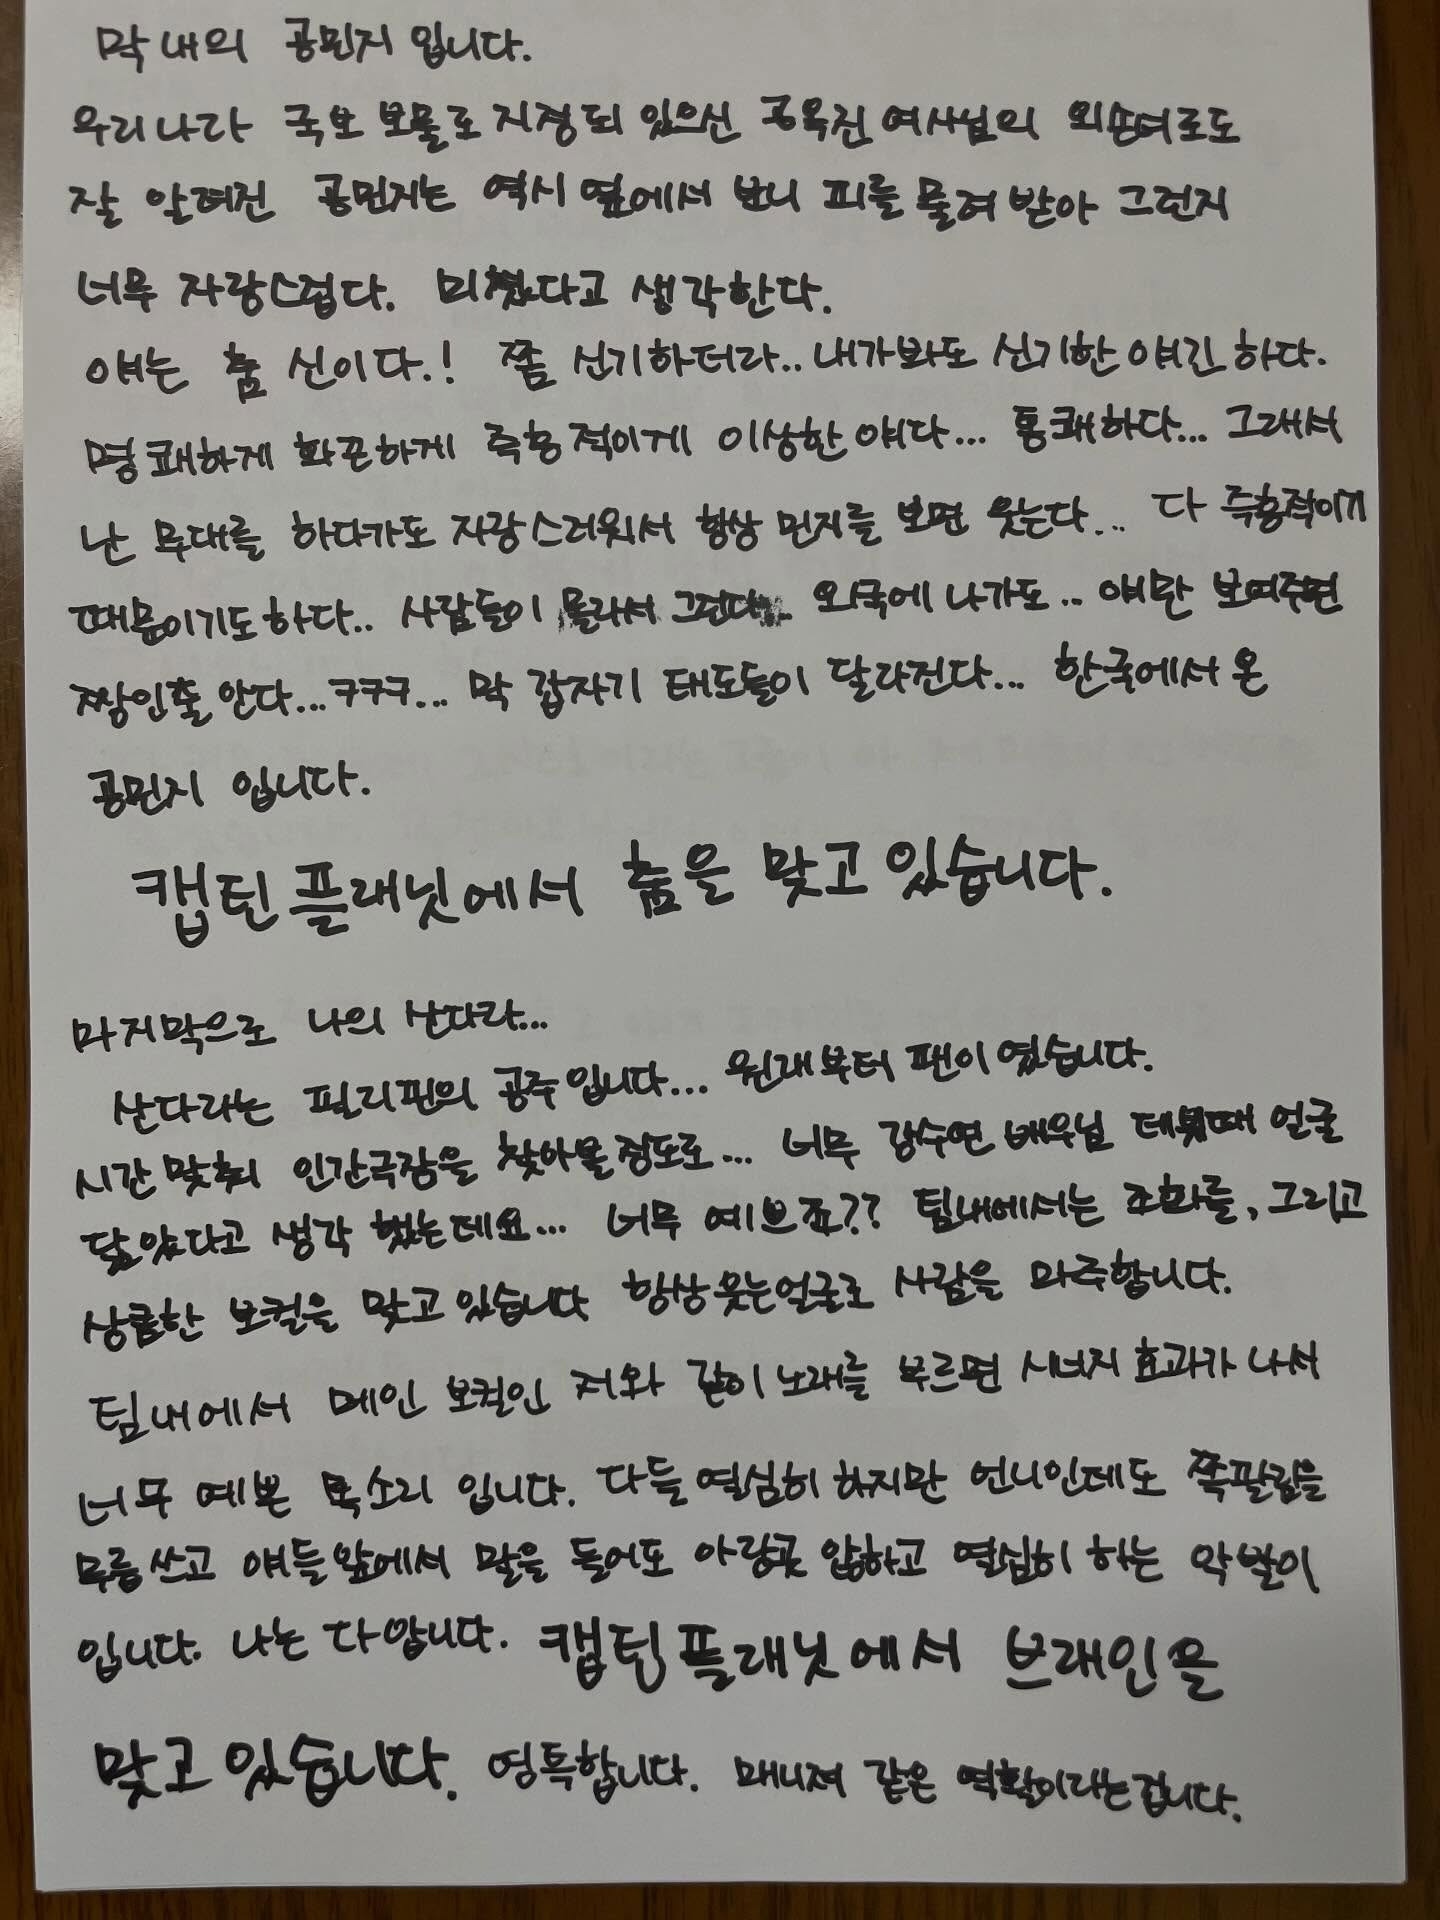 막내의 공민지 입니다.
우리나라 국보 보물로 지정되 있으신 공옥진 여사님의 외손녀로도
잘 알려진 공민지는 역시 옆에서 보니 피를 물려 받아 그런지
너무 자랑스럽다. 미쳤다고 생각한다.
얘는 춤 신이다.! 쫌 신기하더라.. 내가봐도 신기한 얘긴 하다.
명쾌하게 화끈하게 즉흥적이게 이상한 얘다... 통쾌하다... 그래서
난 무대를 하다가도 자랑스러워서 항상 민지를 보면 웃는다... 다 즉흥적이기
때문이기도하다.. 사람들이 몰라서 그런다... 외국에 나가도.. 얘만 보여주면
짱인줄 안다...ㅋㅋㅋ... 막 갑자기 태도들이 달라진다... 한국에서 온
공민지 입니다.
캡틴플래닛에서 춤을 맞고 있습니다.
마지막으로 나의 산다라...
산다라는 필리핀의 공주입니다... 원래부터 팬이 였습니다.
시간 맞춰 인간극장을 찾아볼 정도로... 너무 강수연 배우님 데뷔때 얼굴
닮았다고 생각 했는데요... 너무 예쁘죠?? 팀내에서는 조화를, 그리고
상큼한 보컬을 맞고 있습니다 항상웃는얼굴로 사람을 마주합니다.
팀내에서 메인 보컬인 저와 같이 노래를 부르면 시너지 효과가 나서
너무 예쁜 목소리 입니다. 다들 열심히 하지만 언니인데도 쪽팔림을
무릅쓰고 얘들 앞에서 말을 들어도 아랑곳 않하고 열심히 하는 악발이
입니다. 나는 다 압니다. 캡틴플래닛에서 브레인을
맞고 있습니다. 영특합니다. 매니져 같은 역활이라는겁니다.